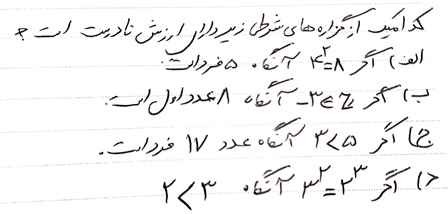 کدامیک از گزاره های شرطی زیر دارای ارزش نادرست است ؟
الف) اگر ۴²=۸ آنگاه ۵ فرد است.
ب) اگر -۳∈ℤ آنگاه ۸ عدد اول است.
ج) اگر ۳<۵ آنگاه عدد ۱۷ فرد است.
د) اگر ۳²=۲³ آنگاه ۲<۳